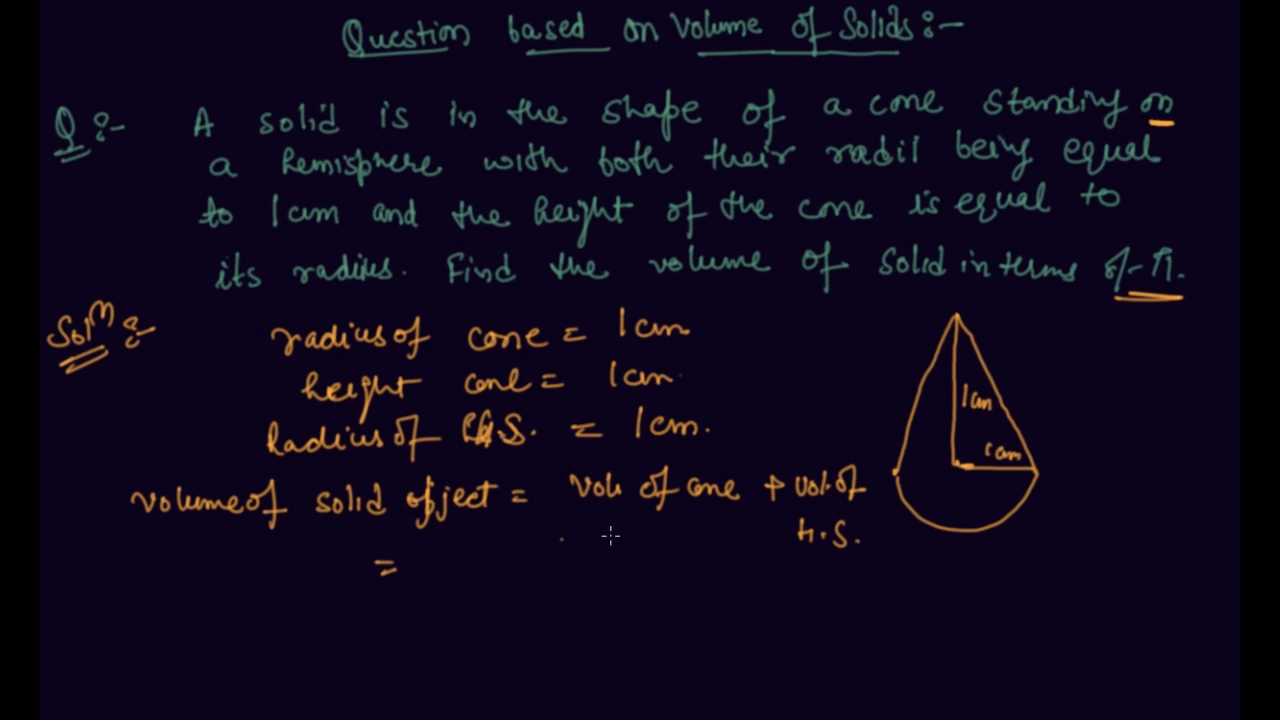 Question based on Volume of Solids:-
Q:- A solid is in the shape of a cone standing on
a hemisphere with both their radii being equal
to 1 cm and the height of the cone is equal to
its radius. Find the volume of solid in terms of π.
Solⁿ:-
radius of cone = 1 cm
height cone = 1 cm
Radius of H.S. = 1 cm.
1 cm
1 cm
volume of solid object = vol. of cone + vol. of
H.S.
=